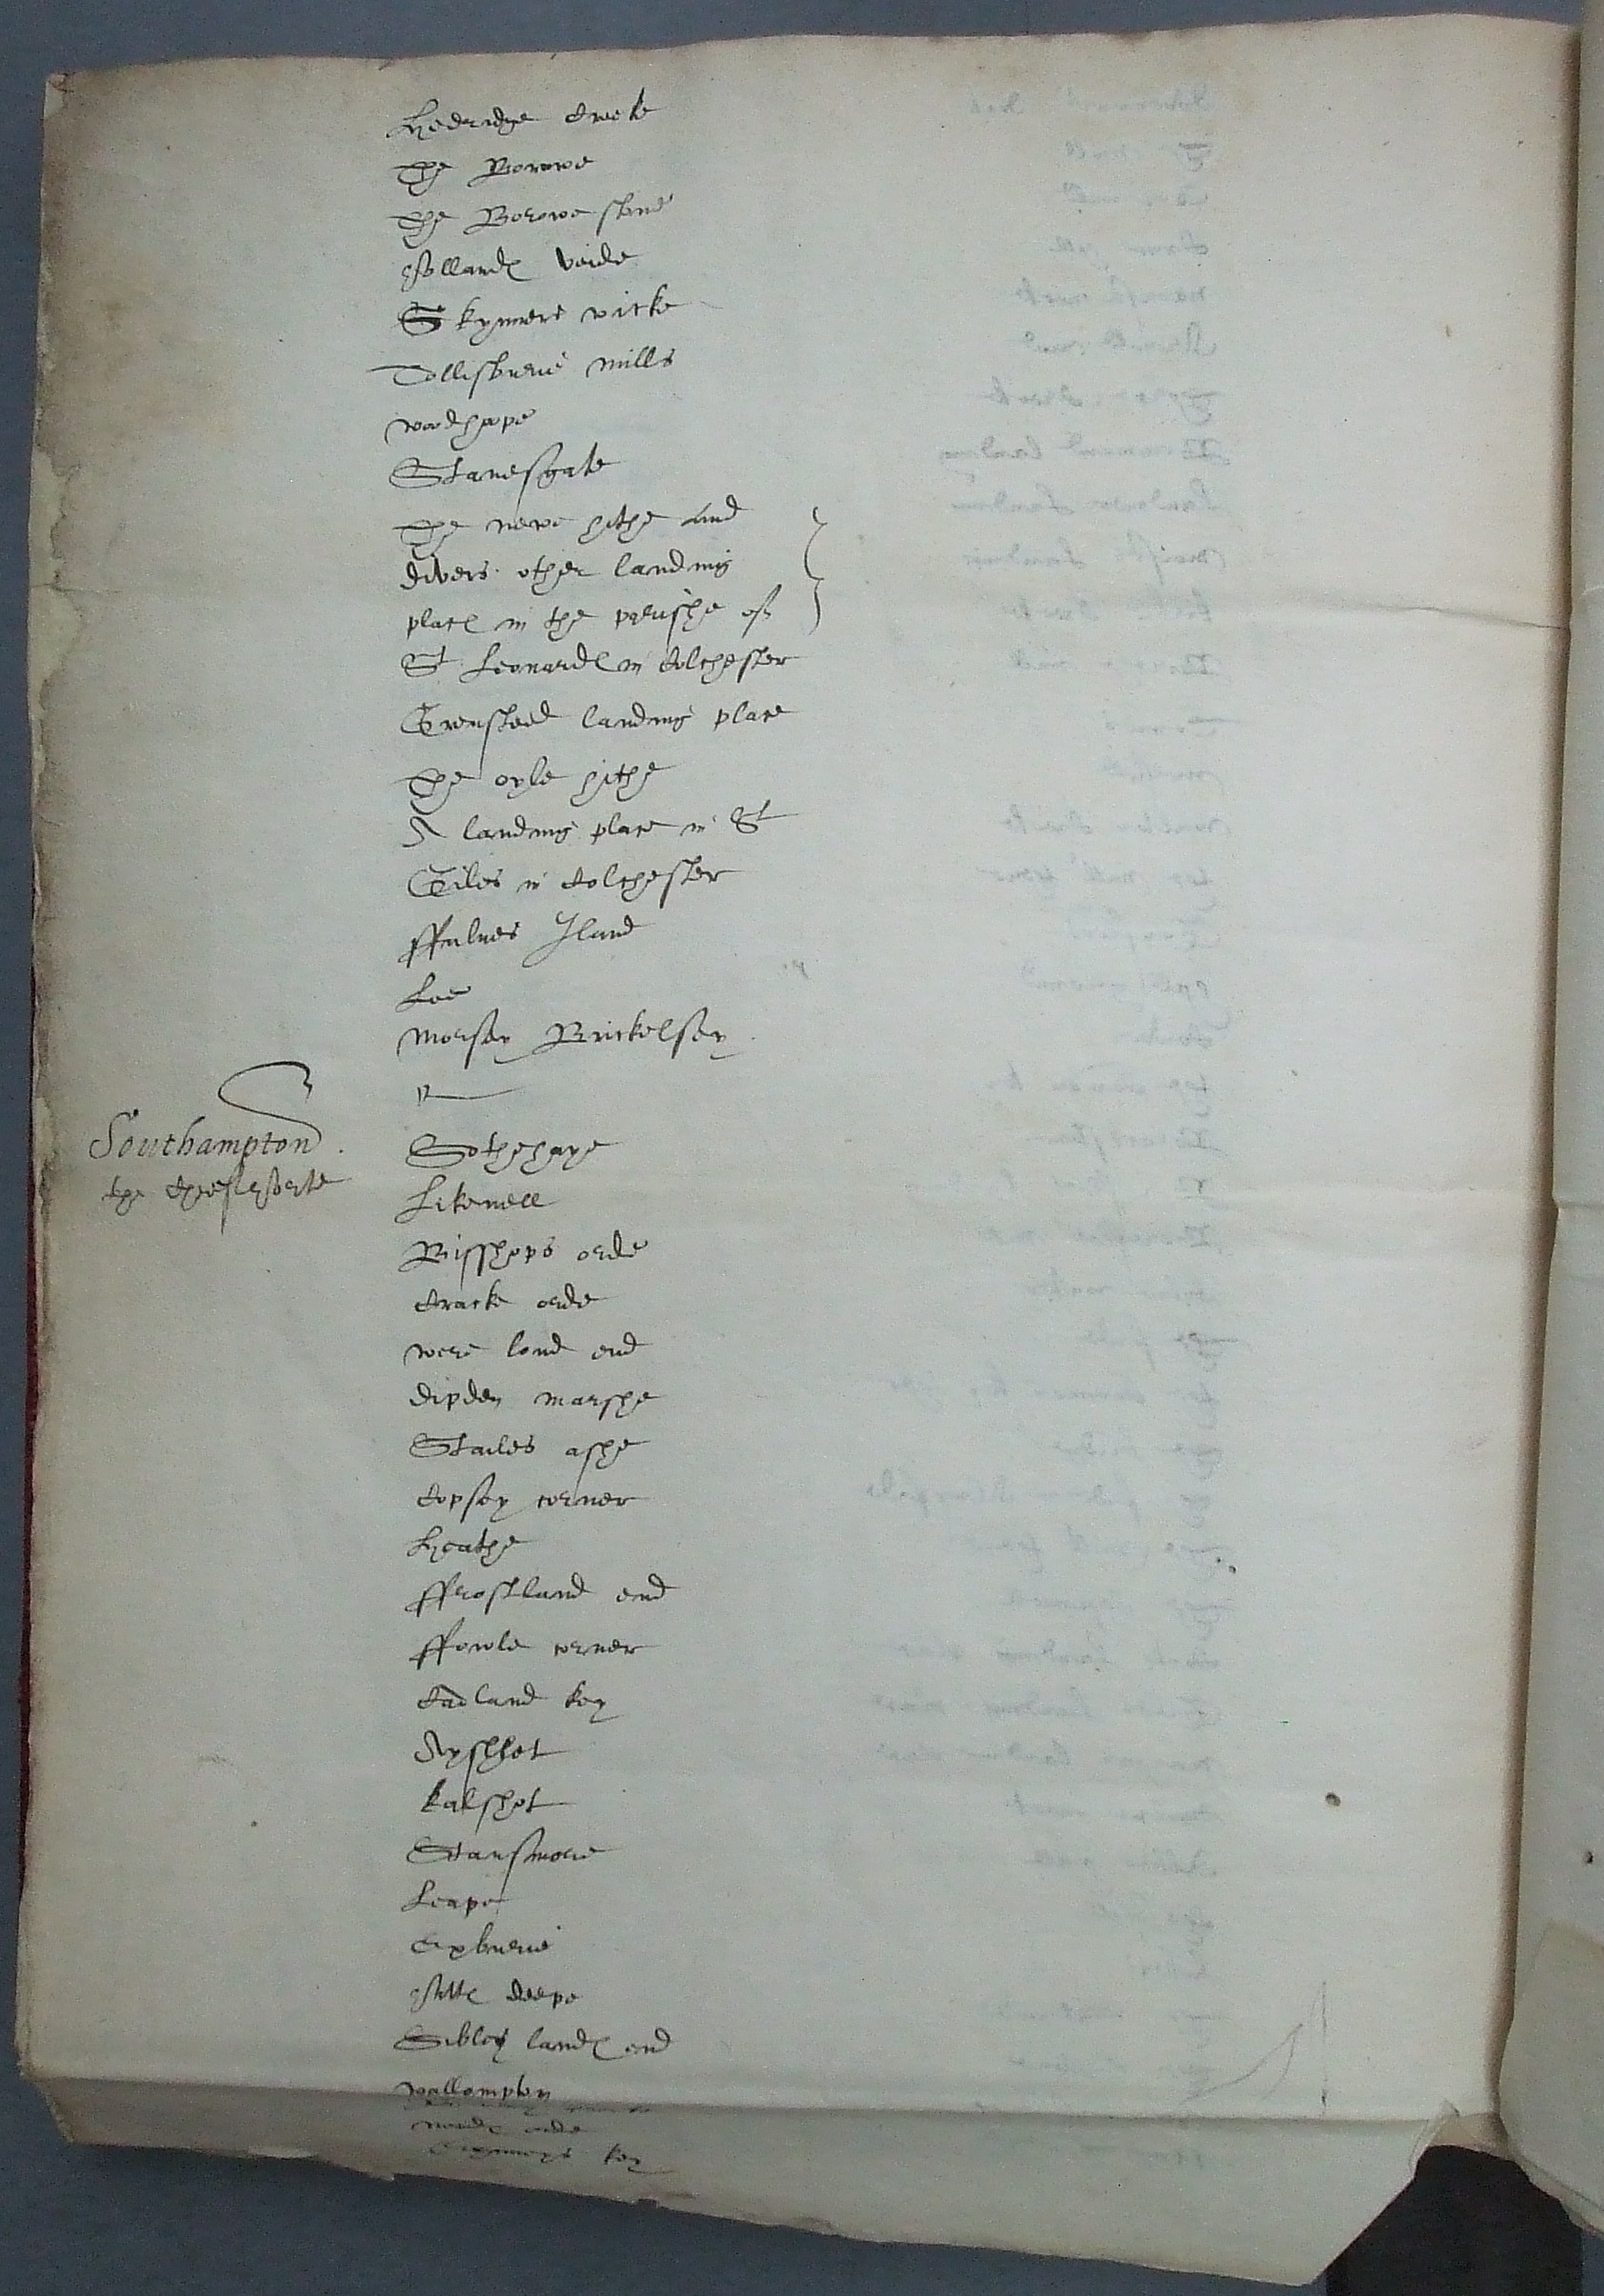 Hedridge Creke
The Borowe
The Borowe stone
Hollandes weide
Skynners wicke
Tollisburie mills
woodhope
Stanesgate
The newe hithe and
divers other landing
places in the parishe of
St Leonardes in Colchester
Grensteed landing place
The oyle hithe
A landing place in St
Giles in Colchester
ffulnes Iland
Lee
Morsey Brickelsey
Southampton
the cheef porte
Sothehaye
Likenell
Bisshops orde
Cracke orde
were lond end
dipden marshe
Stailes ashe
Copsey corner
Heathe
ffrostland end
ffowle corner
Cadland key
Ayshhot
kalshot
Stansmore
Leape
Exburie
Pittes deepe
Sibley landes end
wallompton
key